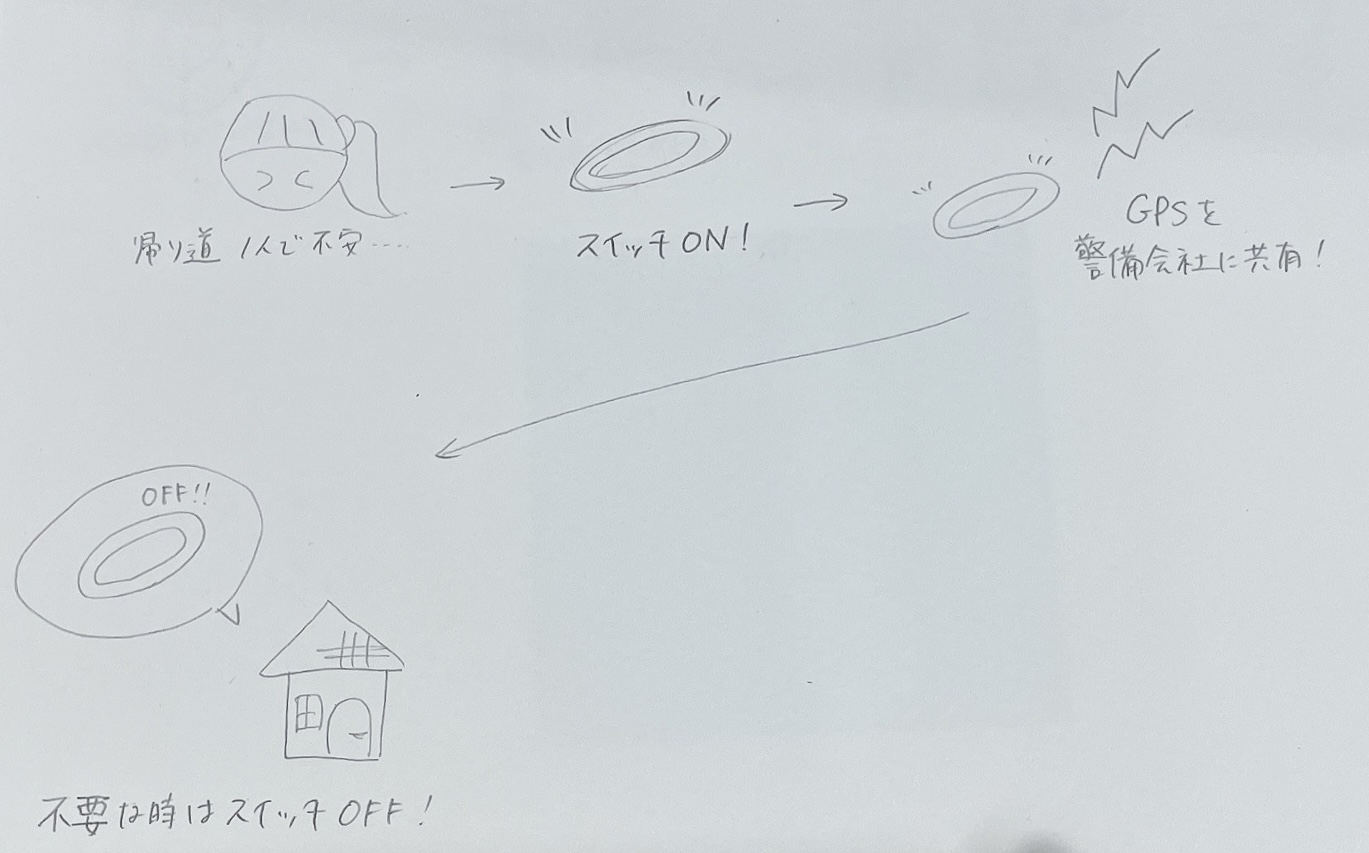 帰り道 1人で不安……
スイッチON!
GPSを
警備会社に共有!
OFF!!
不要な時はスイッチOFF!